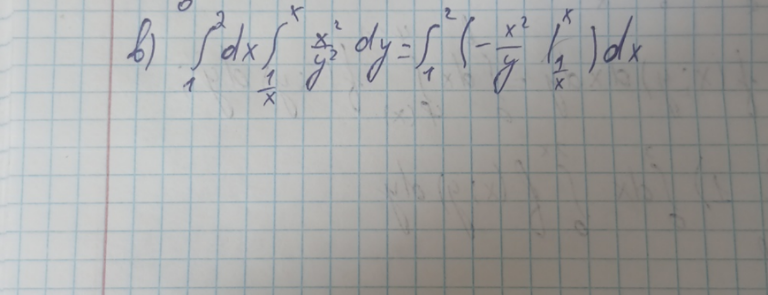 в) ∫₁² dx ∫_{1/x}^{x} x²/y² dy = ∫₁² (- x²/y |_{1/x}^{x}) dx